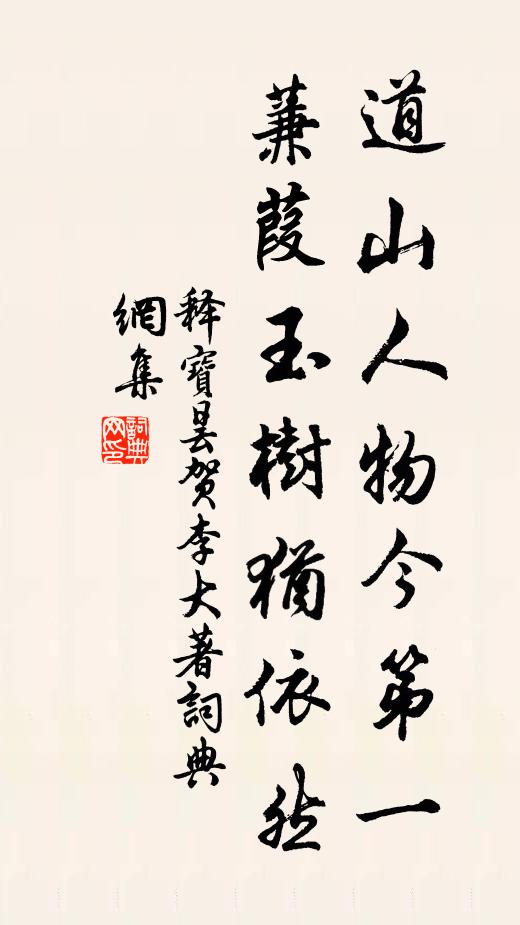 道山人物今第一
蒹葭玉樹猶依然
释寶昙贺李大著詞典
網集
詞典網印